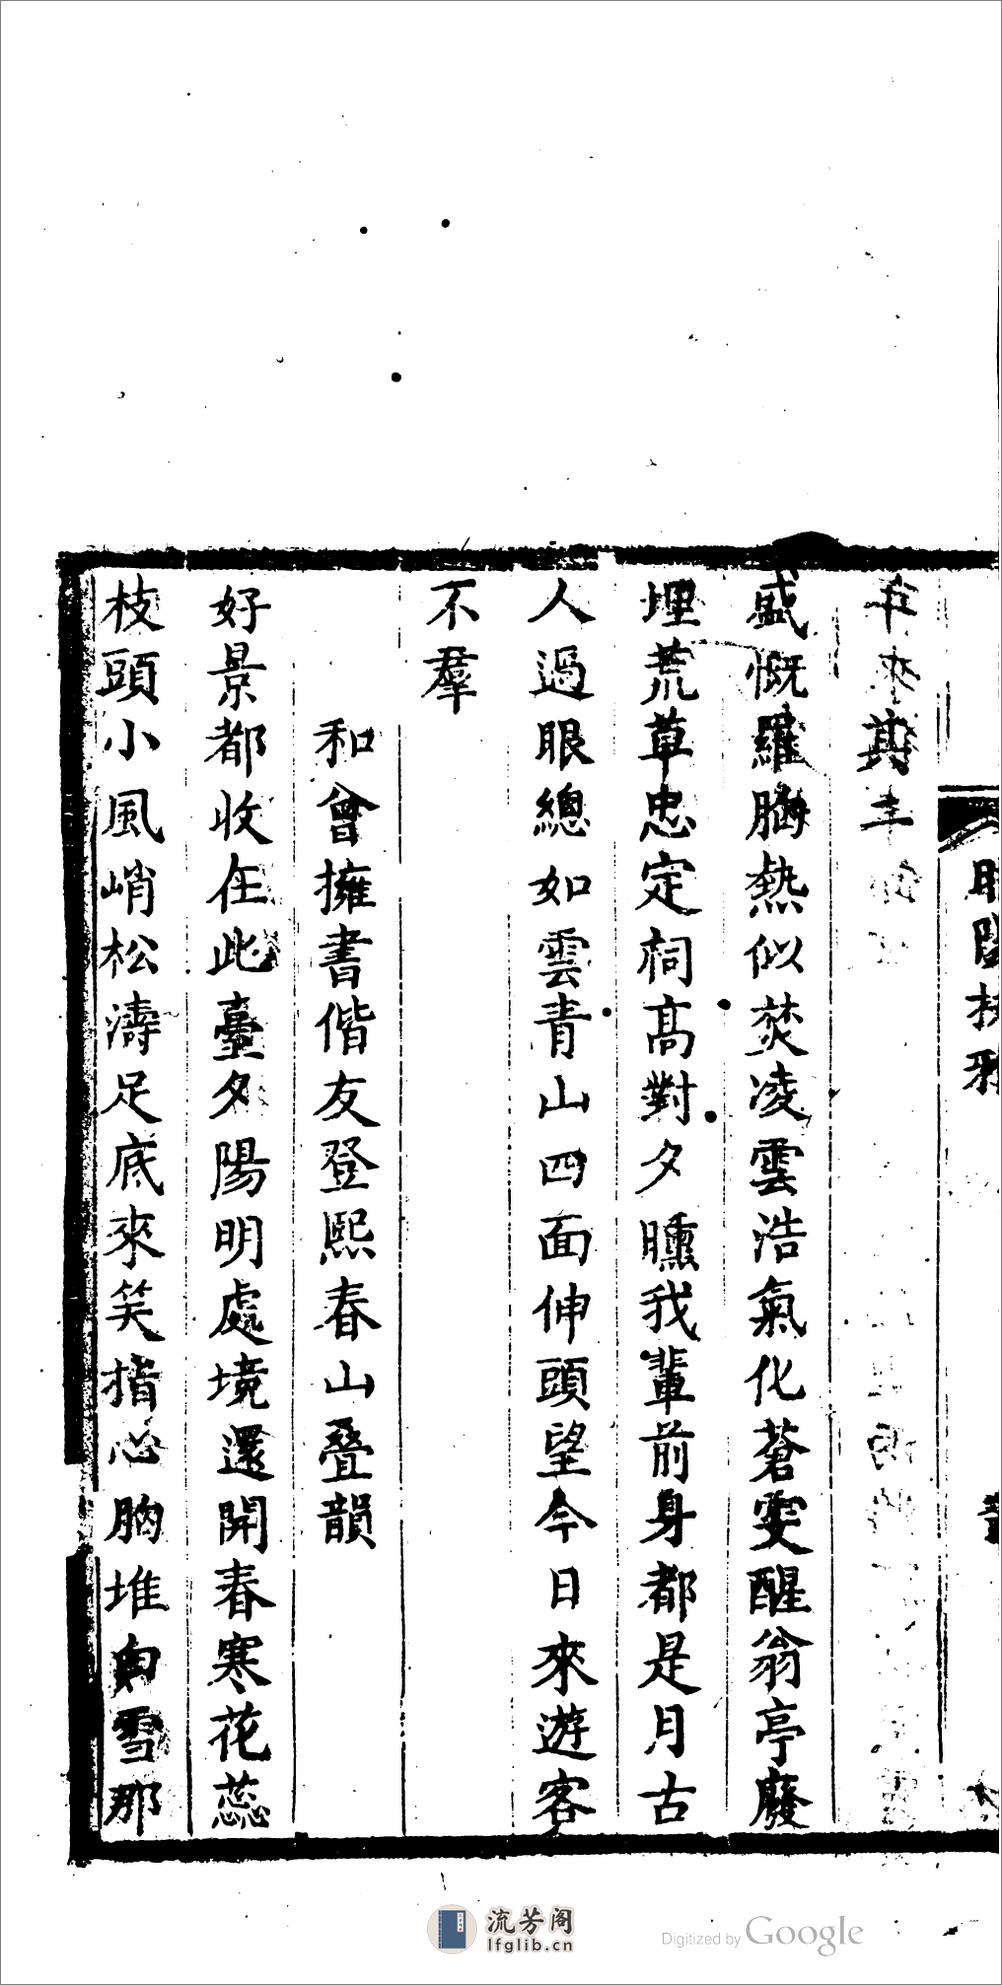 年來
感慨羅胸熱似焚凌雲浩氣化蒼雯醒翁亭廢
埋荒草忠定祠高對夕曛我輩前身都是月古
人過眼總如雲青山四面伸頭望今日來遊客
不羣
和曾擁書偕友登熙春山疊韻
好景都收在此臺夕陽明處境還開春寒花蕊
枝頭小風峭松濤足底來笑指心胸堆白雪那
流芳阁
lfglib.cn
Digitized by Google